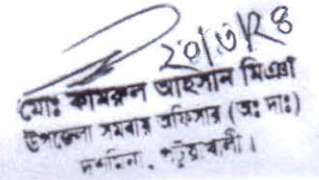 20/7/28
মোঃ কামরুল আহসান মিঞা
উপজেলা সমবায় অফিসার (অঃ দাঃ)
দশমিনা, পটুয়াখালী।